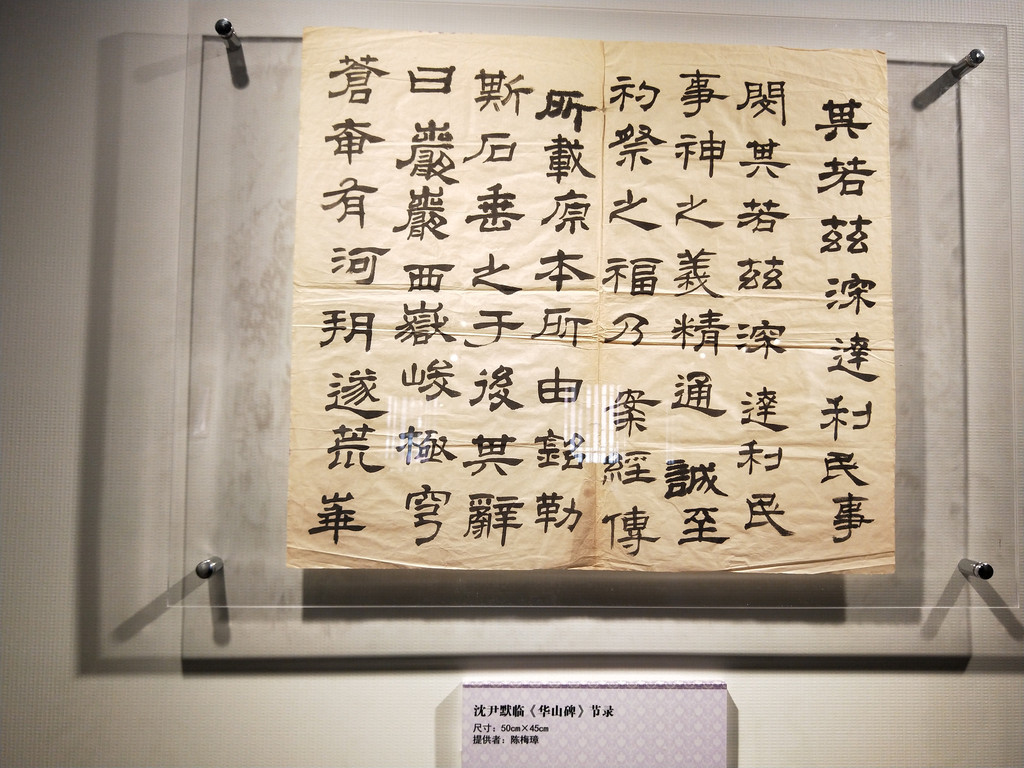 其若茲深達利民事
閔其若茲深達利民
事神之義精通誠至
礿祭之福乃案經傳
所載原本所由銘勒
斯石垂之于後其辭
曰巖巖西嶽峻極穹
蒼奄有河朔遂荒華
沈尹默临《华山碑》节录
尺寸：50cm×45cm
提供者：陈梅璋